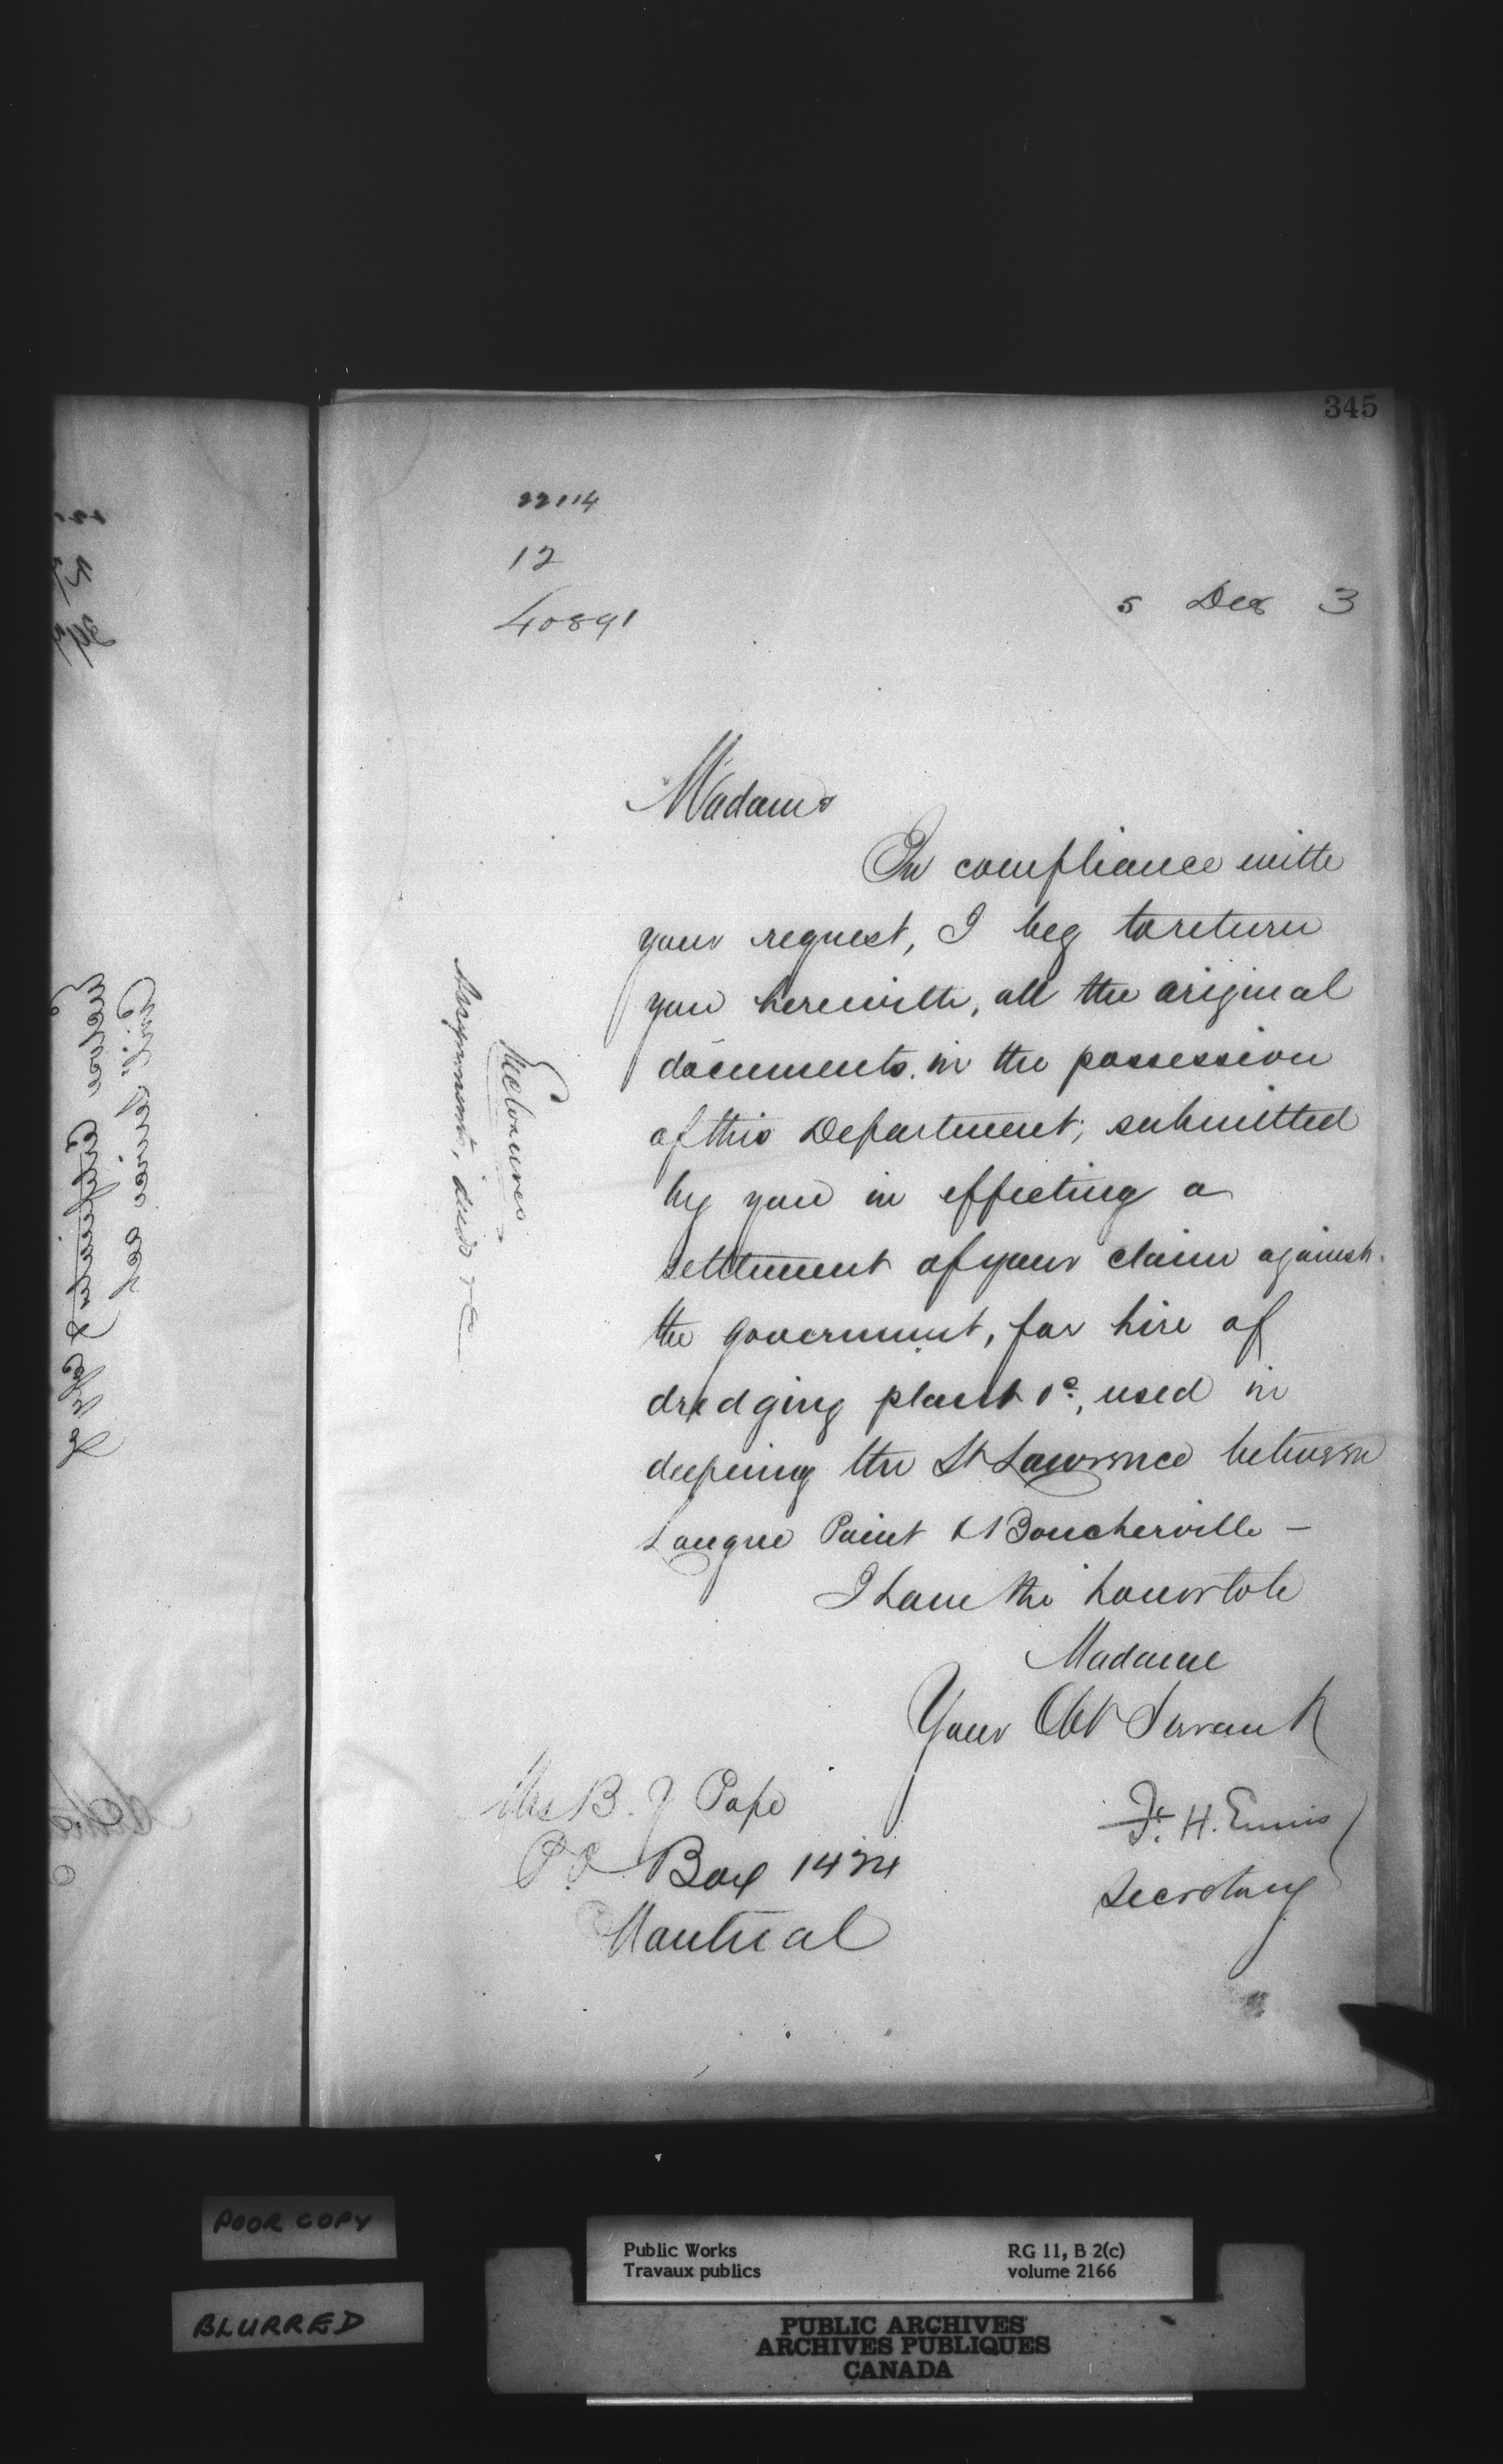 345
22114
12
40891
5 Dec 3
Madam
In compliance with
your request, I beg to return
you herewith, all the original
documents in the possession
of this Department, submitted
by you in effecting a
settlement of your claim against
the Government, for hire of
dredging plant &c, used in
deepening the St Lawrence between
Longue Point & Boucherville —
I have the honor to be
Madame
Your Obt Servant
F. H. Ennis
Secretary
Mrs B. J Pope
PO Box 1424
Montreal
Enclosures
Assignment, deeds &c
POOR COPY
BLURRED
Public Works
Travaux publics
RG 11, B 2(c)
volume 2166
PUBLIC ARCHIVES
ARCHIVES PUBLIQUES
CANADA